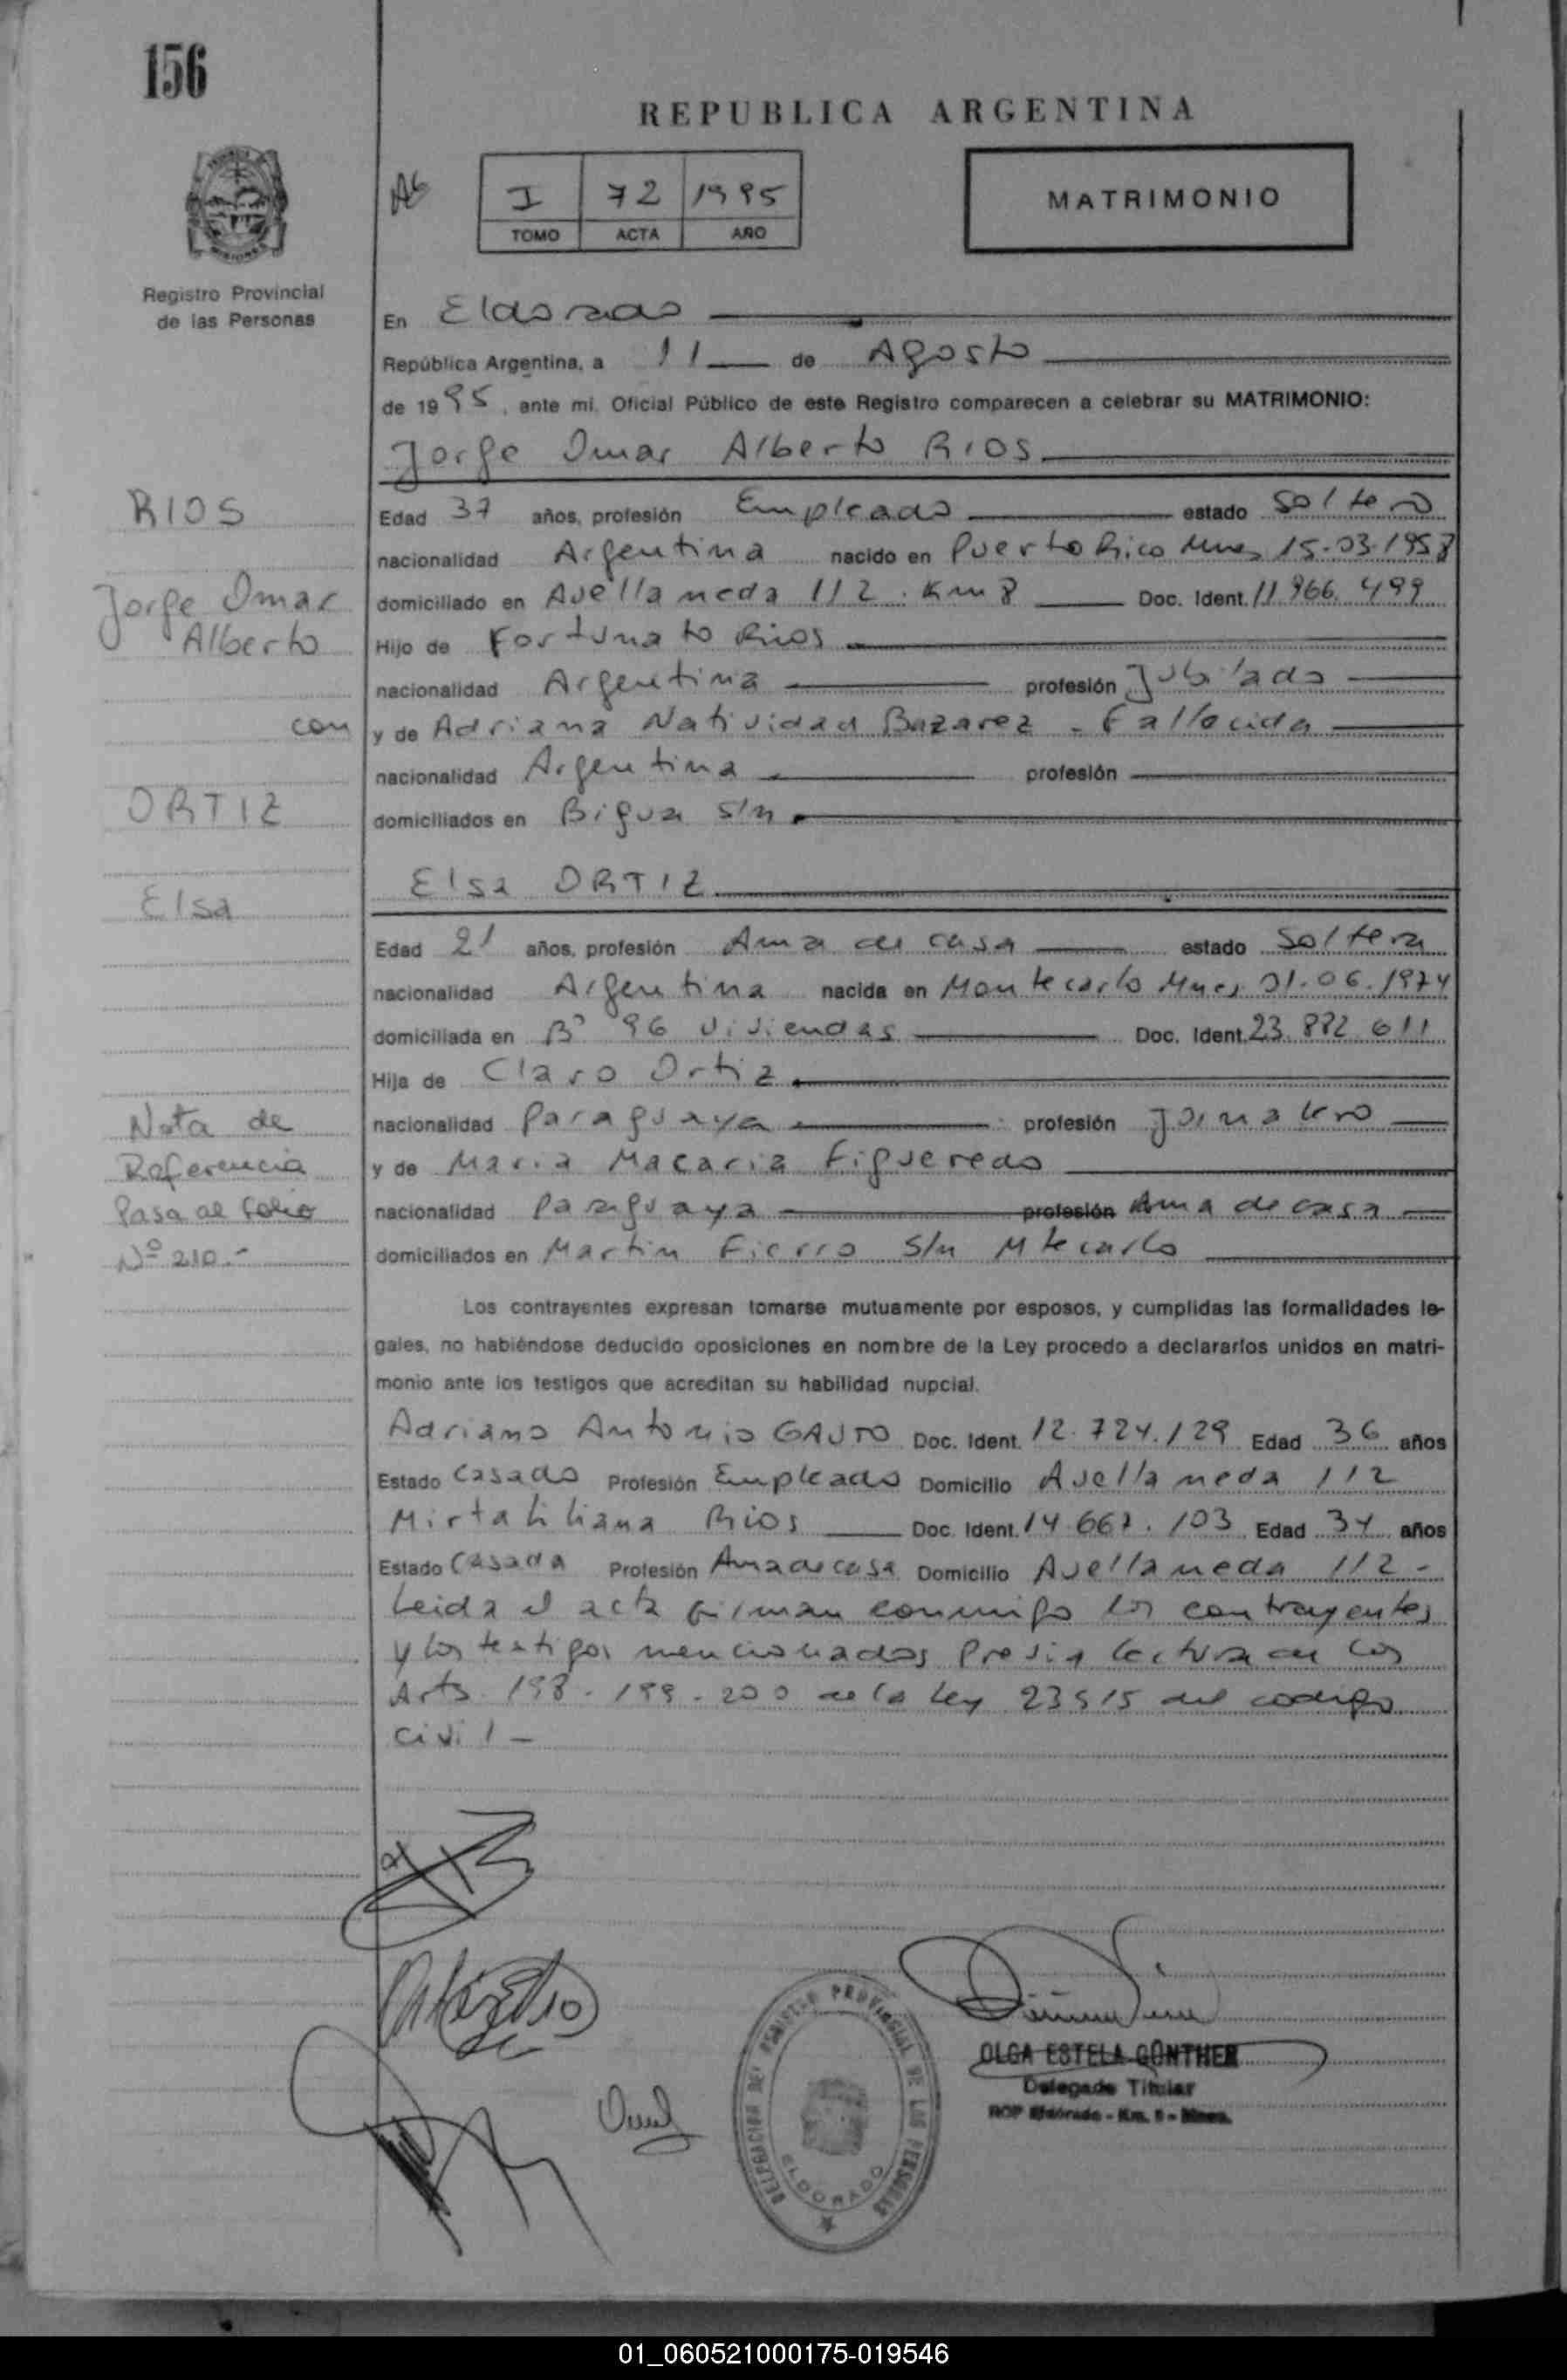 156
REPUBLICA ARGENTINA
I 72 1995
TOMO ACTA AÑO
MATRIMONIO
Registro Provincial
de las Personas
En Eldorado
República Argentina, a 11 de Agosto
de 1995, ante mi, Oficial Público de este Registro comparecen a celebrar su MATRIMONIO:
Jorge Omar Alberto RIOS
RIOS
Jorge Omar
Alberto
con
ORTIZ
Elsa
Edad 37 años, profesión Empleado estado Soltero
nacionalidad Argentina nacido en Puerto Rico Mnes 15-03-1958
domiciliado en Avellaneda 112. Km 8 Doc. Ident. 11.966.499
Hijo de Fortunato Rios
nacionalidad Argentina profesión Jubilado
y de Adriana Natividad Bazarez - Fallecida
nacionalidad Argentina profesión
domiciliados en Bigua S/n
Elsa ORTIZ
Edad 21 años, profesión Ama de casa estado Soltera
nacionalidad Argentina nacida en Montecarlo Mnes 01.06.1974
domiciliada en Bº 96 viviendas Doc. Ident. 23.882.611
Hija de Claro Ortiz
nacionalidad Paraguaya profesión Jornalero
y de Maria Macaria Figueredo
nacionalidad Paraguaya profesión Ama de casa
domiciliados en Martin Fierro S/n Mtecarlo
Nota de
Referencia
Pasa al folio
Nº 210.-
Los contrayentes expresan tomarse mutuamente por esposos, y cumplidas las formalidades le-
gales, no habiéndose deducido oposiciones en nombre de la Ley procedo a declararlos unidos en matri-
monio ante los testigos que acreditan su habilidad nupcial.
Adriano Antonio GAUTO Doc. Ident. 12.724.129 Edad 36 años
Estado Casado Profesión Empleado Domicilio Avellaneda 112
Mirta Liliana Rios Doc. Ident. 14.667.103 Edad 34 años
Estado Casada Profesión Ama de casa Domicilio Avellaneda 112 -
Leida el acta firman conmigo los contrayentes
y los testigos mencionados previa lectura de los
Arts. 198 - 199 - 200 de la Ley 23515 del codigo
civil -
DELEGACION DEL REGISTRO PROVINCIAL DE LAS PERSONAS
ELDORADO
OLGA ESTELA GÜNTHER
Delegada Titular
RCP Eldorado - Km. 8 - Mnes.
01_060521000175-019546